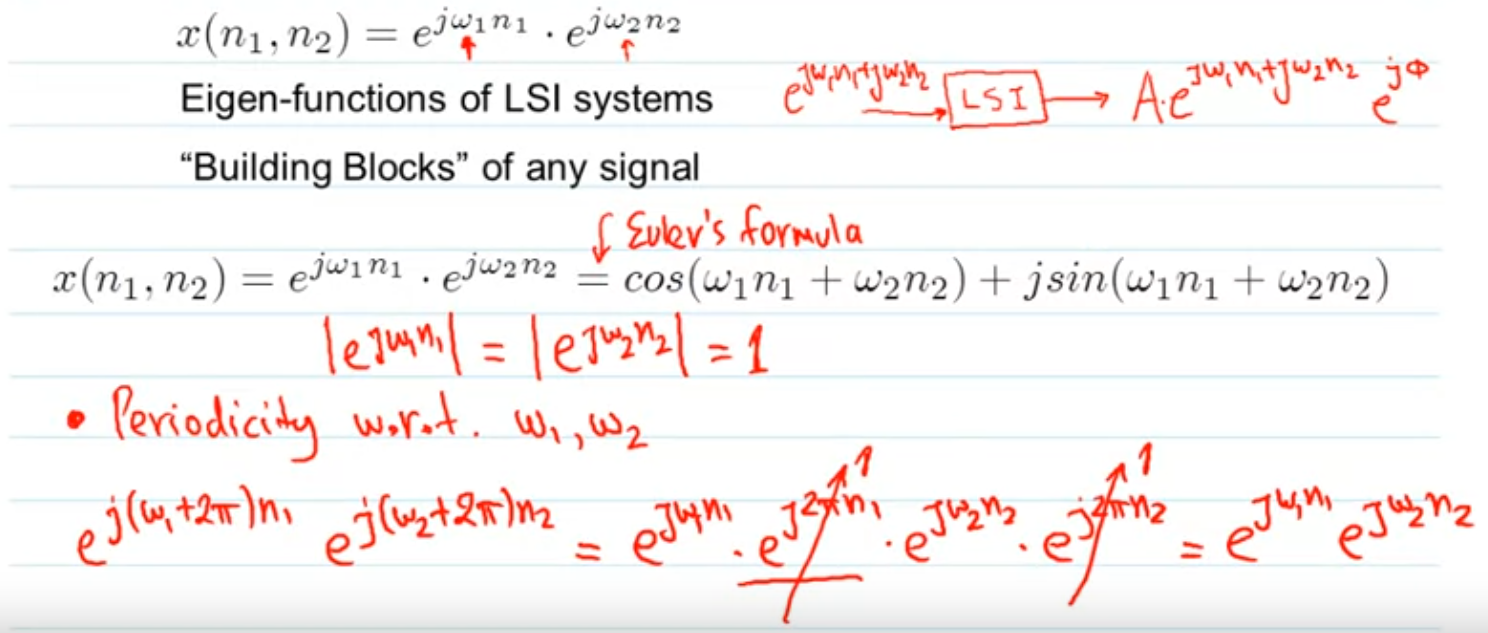 x(n₁, n₂) = e^{jω₁n₁} · e^{jω₂n₂}
Eigen-functions of LSI systems e^{jω₁n₁+jω₂n₂} → LSI → A·e^{jω₁n₁+jω₂n₂} e^{jΦ}
“Building Blocks” of any signal
Euler's formula
x(n₁, n₂) = e^{jω₁n₁} · e^{jω₂n₂} = cos(ω₁n₁ + ω₂n₂) + jsin(ω₁n₁ + ω₂n₂)
|e^{jω₁n₁}| = |e^{jω₂n₂}| = 1
• Periodicity w.r.t. ω₁, ω₂
1 1
e^{j(ω₁+2π)n₁} e^{j(ω₂+2π)n₂} = e^{jω₁n₁} · e^{j2πn₁} · e^{jω₂n₂} · e^{j2πn₂} = e^{jω₁n₁} e^{jω₂n₂}